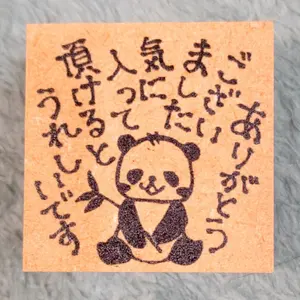 ありがとう
ござい
ました
気に
入って
頂けると
うれしーいです